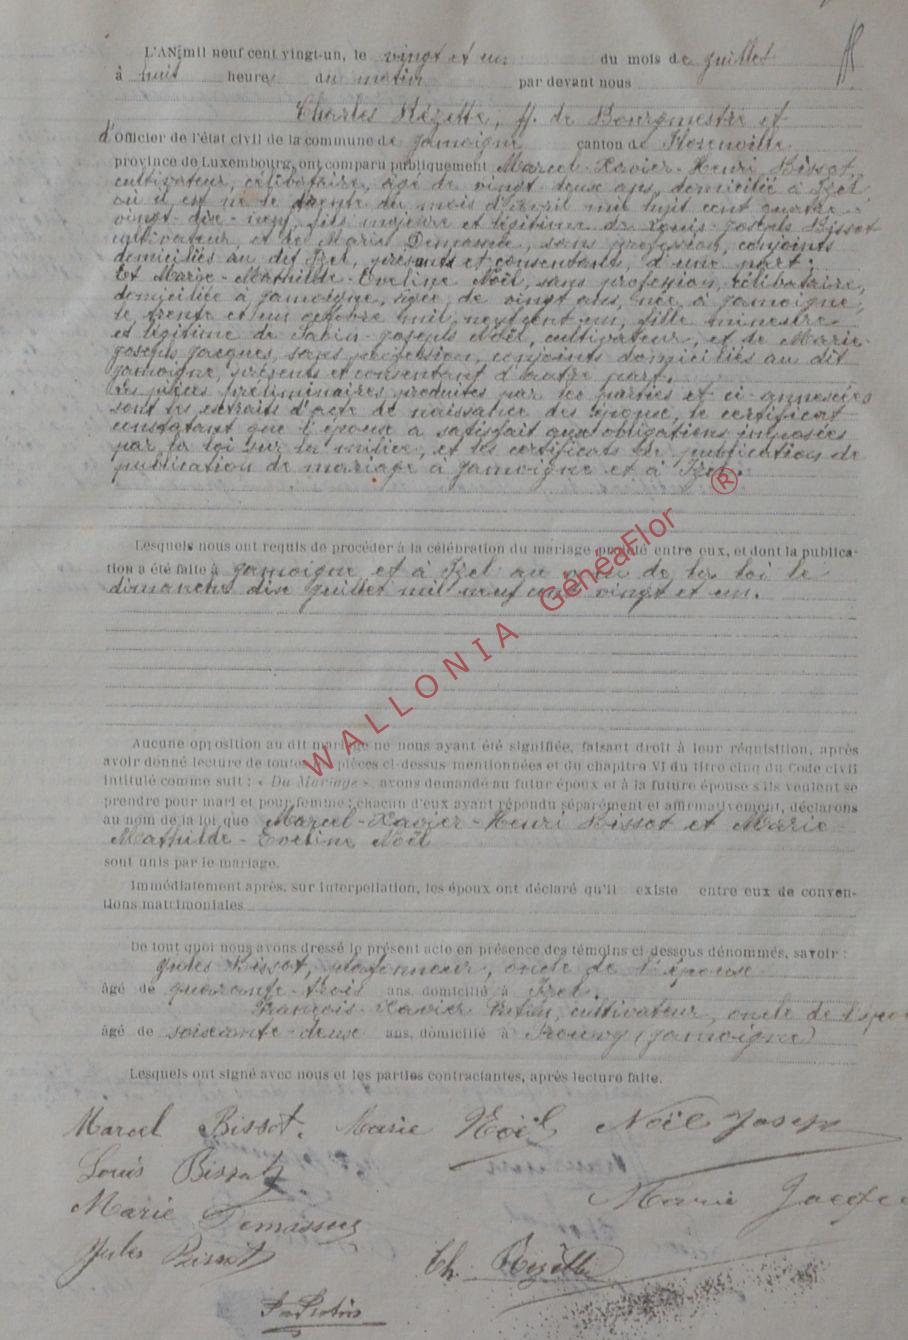 L'AN mil neuf cent vingt-un, le vingt et un du mois de juillet
à huit heures du matin par devant nous
Charles Rézette, ff. de Bourgmestre et
d'Officier de l'état civil de la commune de Jamoigne canton de Florenville
province de Luxembourg, ont comparu publiquement Marcel-Xavier-Henri Bissot,
cultivateur, célibataire, âgé de vingt-deux ans, domicilié à Izel
où il est né le trente du mois d'avril mil huit cent quatre-
vingt-dix-neuf, fils majeur et légitime de Louis-Joseph Bissot
cultivateur, et de Marie, sans profession, conjoints
domiciliés au dit Izel, présents et consentants, d'une part;
Et Marie-Mathilde-Eveline Noël, sans profession, célibataire,
domiciliée à Jamoigne, âgée de vingt ans, née à Jamoigne,
le trente et un octobre mil neuf cent un, fille mineure
et légitime de Joseph Noël, cultivateur, et de Marie-
Joseph Jacques, sans profession, conjoints domiciliés au dit
Jamoigne, présents et consentant d'autre part.
Les pièces préliminaires produites par les parties et ci-annexées
sont les extraits d'acte de naissance des époux, le certificat
constatant que l'époux a satisfait aux obligations imposées
par la loi sur la milice, et les certificats de publication de
publication de mariage à Jamoigne et à Izel.
Lesquels nous ont requis de procéder à la célébration du mariage projeté entre eux, et dont la publica-
tion a été faite à Jamoigne et à Izel au vœu de la loi le
dimanche dix juillet mil neuf cent vingt et un.
WALLONIA GénéaFlor ®
Aucune opposition au dit mariage ne nous ayant été signifiée, faisant droit à leur réquisition, après
avoir donné lecture de toutes les pièces ci-dessus mentionnées et du chapitre VI du titre cinq du Code civil
intitulé comme suit : « Du Mariage », avons demandé au futur époux et à la future épouse s'ils veulent se
prendre pour mari et pour femme ; chacun d'eux ayant répondu séparément et affirmativement, déclarons
au nom de la loi que Marcel-Xavier-Henri Bissot et Marie-
Mathilde-Eveline Noël
sont unis par le mariage.
Immédiatement après, sur interpellation, les époux ont déclaré qu'il existe entre eux de conven-
tions matrimoniales
De tout quoi nous avons dressé le présent acte en présence des témoins ci-dessous dénommés, savoir :
Jules Bissot, plafonneur, oncle de l'époux
âgé de quarante-trois ans, domicilié à Izel.
François-Xavier, cultivateur, oncle de l'épou
âgé de soixante-deux ans, domicilié à Prouvy (Jamoigne)
Lesquels ont signé avec nous et les parties contractantes, après lecture faite.
Marcel Bissot. Marie Noël Noël Joseph
Louis Bissot
Marie Marie
Jules Bissot Ch. Rézette